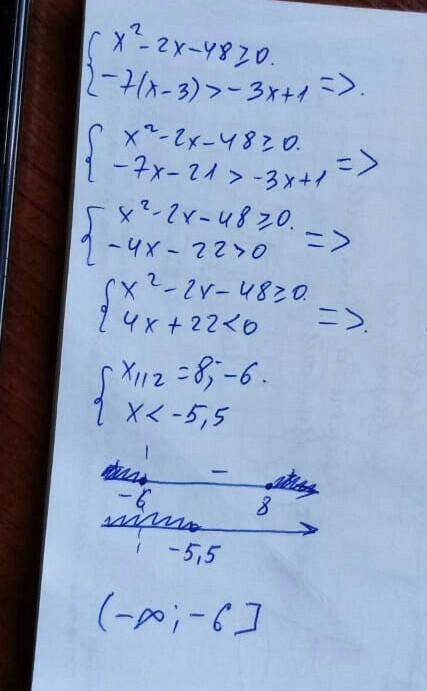 x² - 2x - 48 ≥ 0.
-7(x - 3) > -3x + 1 =>.
x² - 2x - 48 ≥ 0.
-7x - 21 > -3x + 1 =>
x² - 2x - 48 ≥ 0.
-4x - 22 > 0 =>
x² - 2x - 48 ≥ 0.
4x + 22 < 0 =>.
x₁,₂ = 8; -6.
x < -5,5
-
-6 8
-5,5
(-∞; -6]